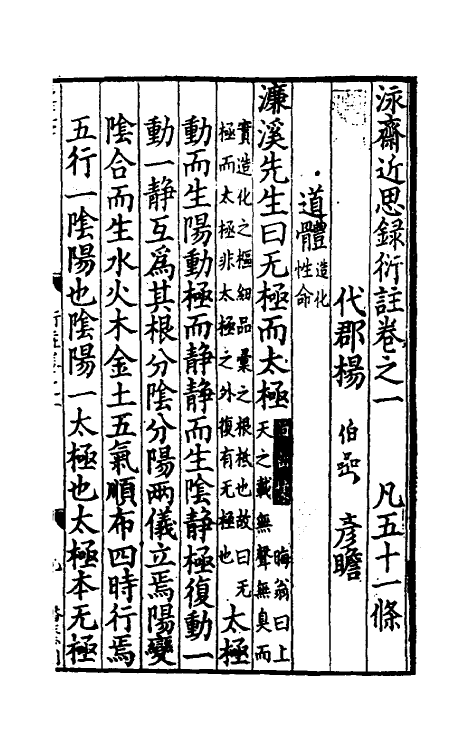 泳齋近思錄衍註卷之一　凡五十一條
代郡楊　伯嵒　彥瞻
道體 造化 性命
濂溪先生曰无極而太極 晦翁曰上天之載無聲無臭而
實造化之樞紐品彙之根柢也故曰无極而太極非太極之外復有无極也 太極
動而生陽動極而靜靜而生陰靜極復動一
動一靜互爲其根分陰分陽兩儀立焉陽變
陰合而生水火木金土五氣順布四時行焉
五行一陰陽也陰陽一太極也太極本无極